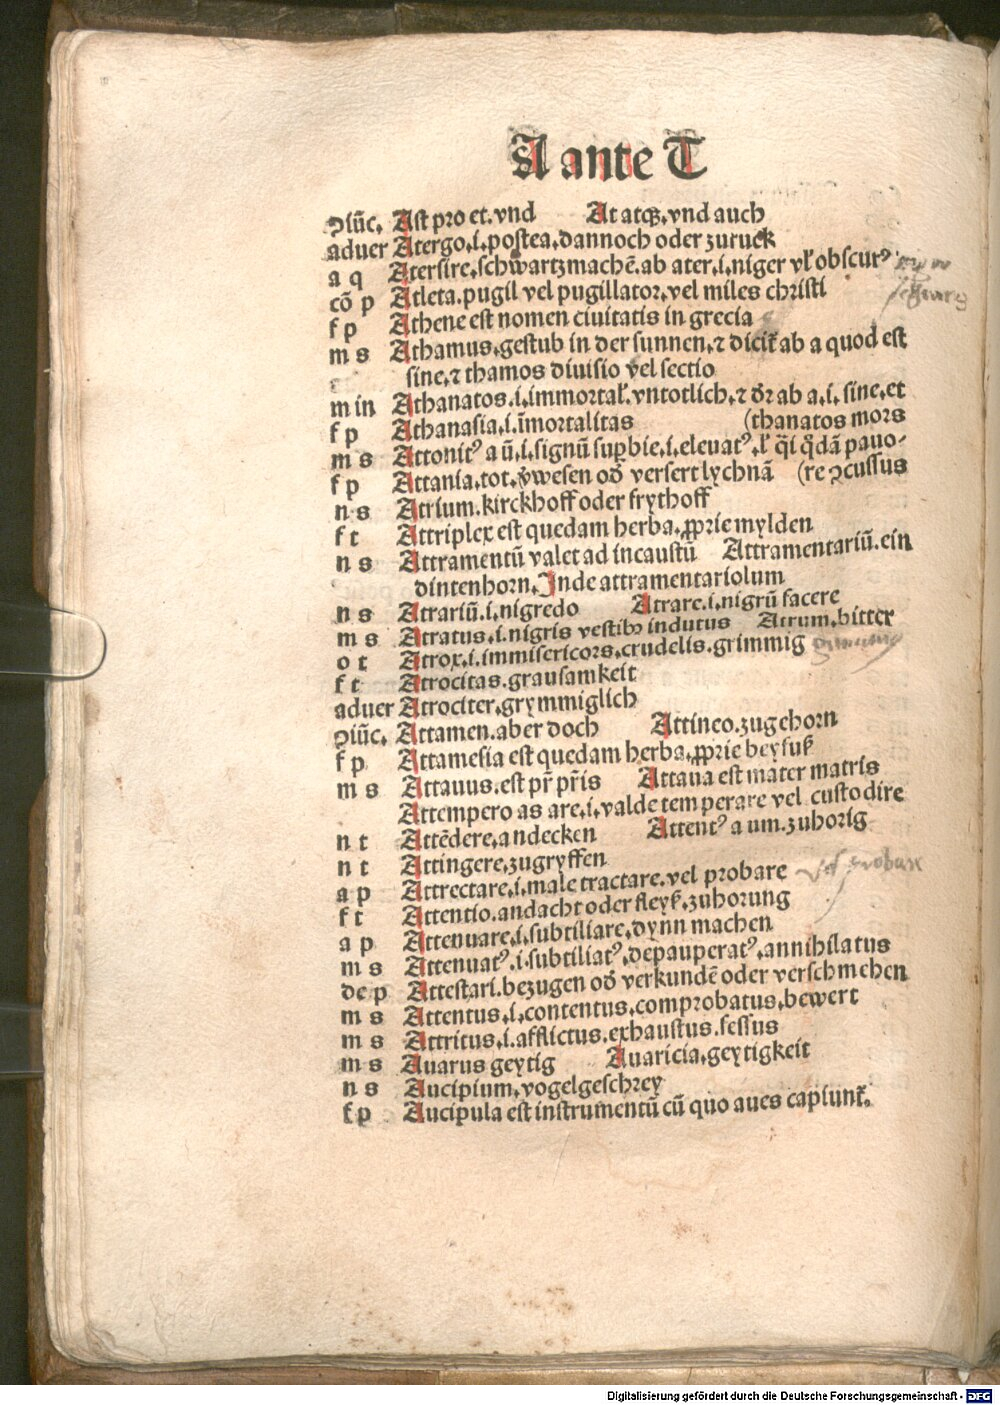 A ante T
ꝯiũc. Ast pro et. vnd At atqꝫ. vnd auch
aduer Atergo. i. postea. dannoch oder zuruck
a q Atersire. schwartzmachẽ. ab ater. i. niger vł obscurꝰ
cõ p Atleta. pugil vel pugillator. vel miles christi
f p Athene est nomen ciuitatis in grecia
m s Athamus. gestub in der sunnen. ⁊ dicit̃ ab a quod est
sine. ⁊ thamos diuisio vel sectio
m in Athanatos. i. immortal̃. vntotlich. ⁊ dr̃ ab a. i. sine. et
f p Athanasia. i. ĩmortalitas (thanatos mors
m s Attonitꝰ a ũ. i. signũ suꝑbie. i. eleuatꝰ. ł q̃i q̃dã pauo-
f p Attania. tot. v̾wesen od̾ versert lychnã (re ꝯcussus
n s Atrium. kirckhoff oder frythoff
f t Attriplex est quedam herba. ꝓprie mylden
n s Attramentũ valet ad incaustũ Attramentariũ. ein
dintenhorn. Inde attramentariolum
n s Atrariũ. i. nigredo Atrare. i. nigrũ facere
m s Atratus. i. nigris vestibꝫ indutus Atrum. bitter
o t Atrox. i. immisericors. crudelis. grimmig
f t Atrocitas. grausamkeit
aduer Atrociter. grymmiglich
ꝯiũc. Attamen. aber doch Attineo. zugehorn
f p Attamesia est quedam herba. ꝓprie beyfuß
m s Attauus. est pr̃ pr̃is Attaua est mater matris
Attempero as are. i. valde temperare vel custodire
n t Attẽdere. andecken Attentꝰ a um. zuhorig
n t Attingere. zugryffen
a p Attrectare. i. male tractare. vel probare vel probare
f t Attentio. andacht oder fleyß. zuhorung
a p Attenuare. i. subtiliare. dynn machen
m s Attenuatꝰ. i. subtiliatꝰ. depauperatꝰ. annihilatus
de p Attestari. bezugen od̾ verkundẽ oder verschmehen
m s Attentus. i. contentus. comprobatus. bewert
m s Attritus. i. afflictus. exhaustus. fessus
m s Auarus geytig Auaricia. geytigkeit
n s Aucipium. vogelgeschrey
f p Aucipula est instrumentũ cũ quo aues capiunt̃.
Digitalisierung gefördert durch die Deutsche Forschungsgemeinschaft - DFG